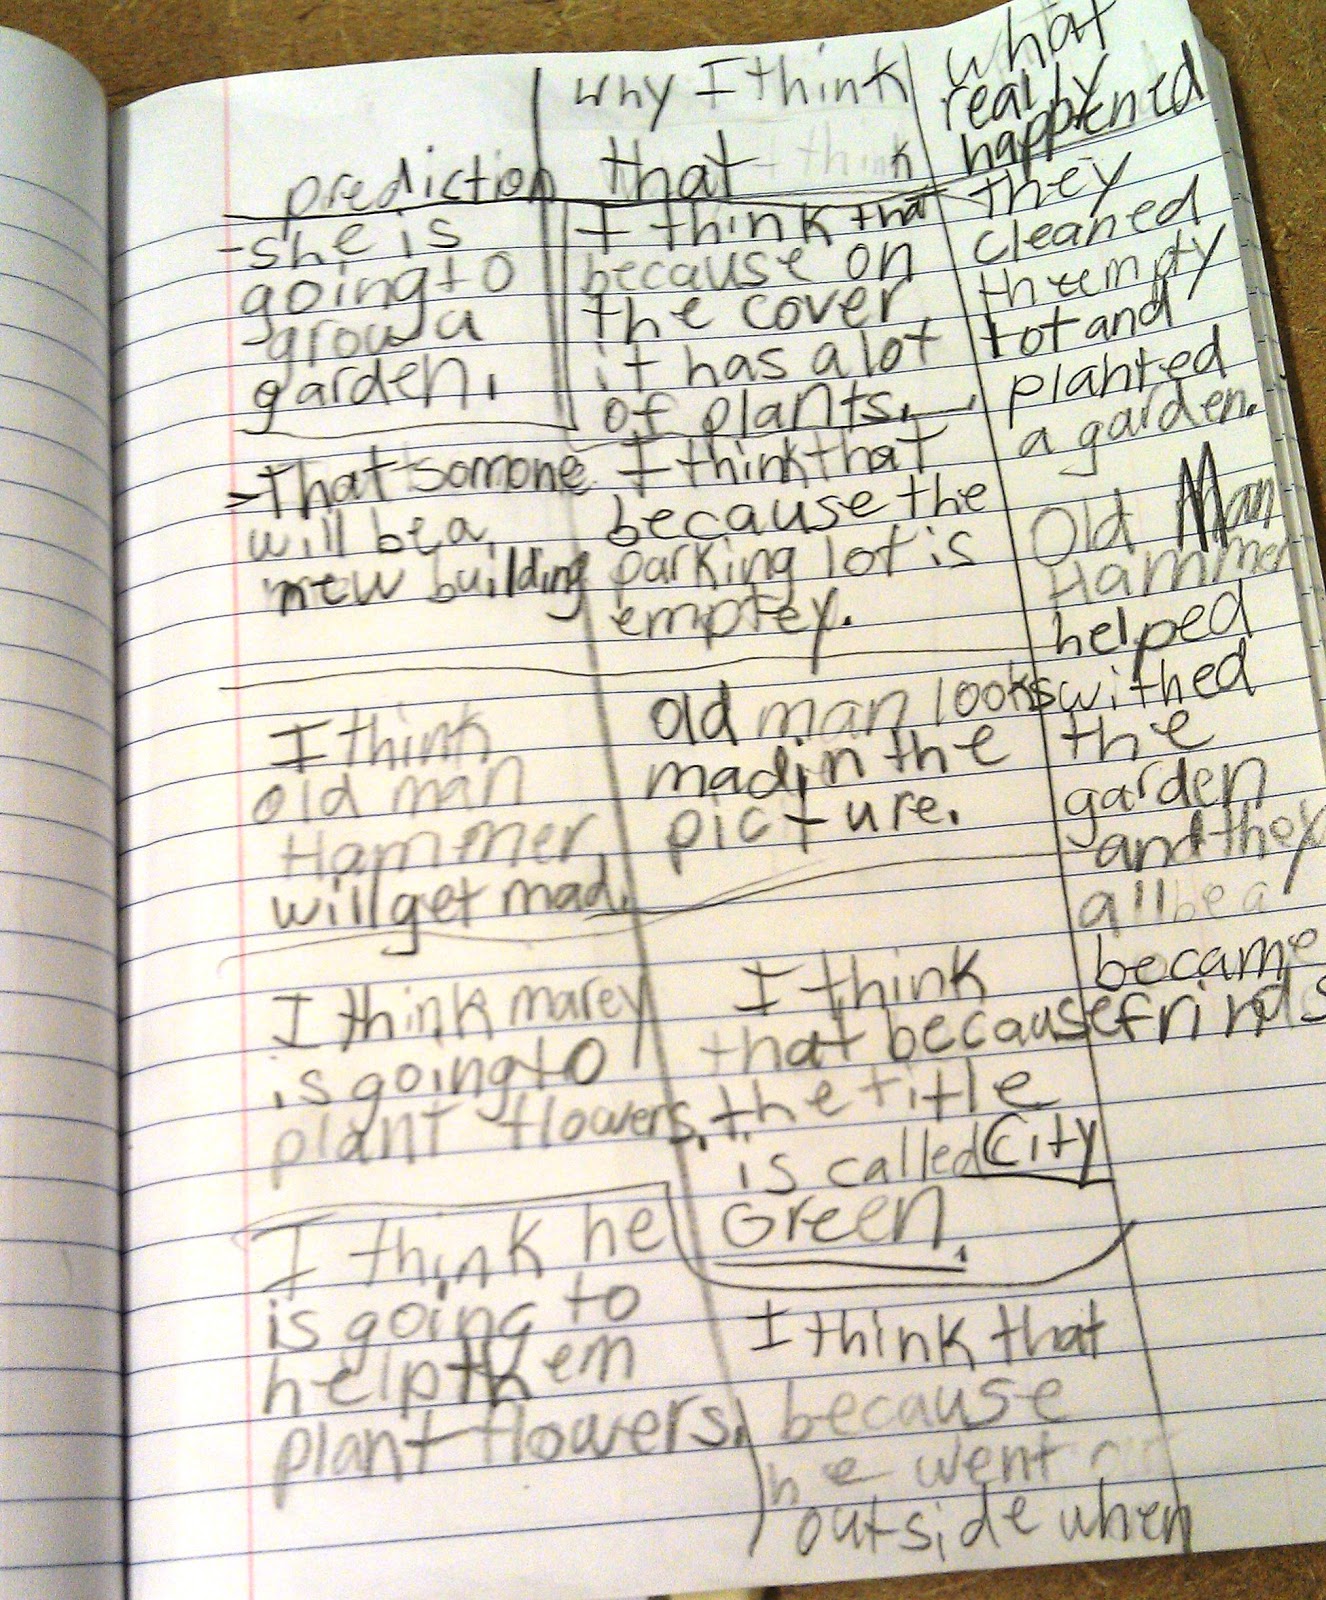 prediction
-she is
going to
grow a
garden.
-That somone
will be a
new building
I think
old man
Hammer
will get mad.
I think marey
is going to
plant flowers.
I think he
is going to
help them
plant flowers.
why I think
that think
I think that
because on
the cover
it has a lot
of plants.
I think that
because the
parking lot is
emptey.
old man looks
mad in the
picture.
I think
that because
the title
is called City
Green.
I think that
because
he went
outside when
what
really
happened
they
cleaned
the empty
lot and
planted
a garden.
Old Man
Hammer
helped
withed
the
garden
and they
all be a
became
frinds